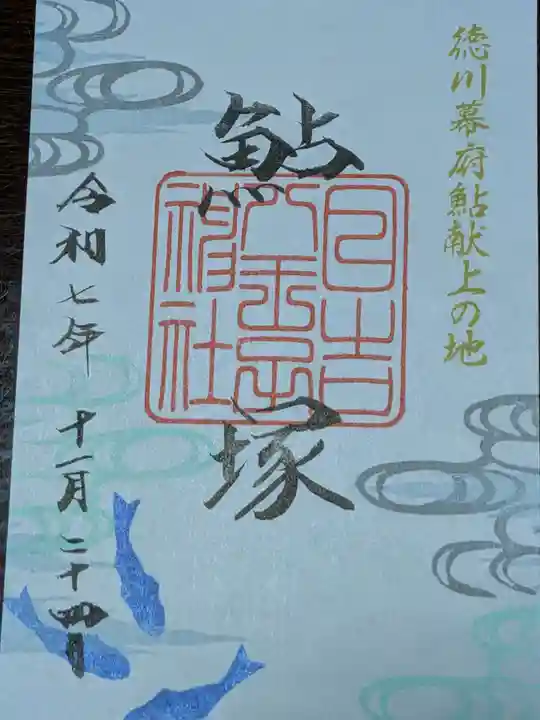 徳川幕府鮎献上の地
鮎塚
日吉八王子神社
令和七年 十一月 二十四日